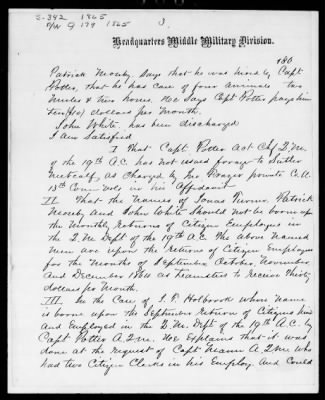 S-342 1865
P/W Q 179 1865
3.
Headquarters Middle Military Division.
180
Patrick Moreby Says that he was hired by Capt
Potter, that he has care of four animals two
mules & two horses. He Says Capt Potter pays him
ten (10) dollars per Month.
John White, has been discharged
I am Satisfied
I That Capt Potter Act Chf Q.M.
of the 19th A.C. has not issued forage to Sutler
Metcalf, as Charged by Geo Frazer private Co. A
13th Conn Vols in his Affidavit
II. That the Names of Jonas Turner, Patrick
Moreby and John White Should not be borne upon
the Monthly Returns of Citizen Employees in
the Q.M. Dept of the 19th A.C. The above Named
Men are upon the Returns of Citizen Employees
for the Months of September October, November
and December 1864 as Teamsters to receive thirty
dollars per Month.
III. In the Case of S. P. Holbrook whose name
is borne upon the September Return of Citizens hired
and Employed in the Q.M. Dept of the 19th A.C. by
Capt Potter A.Q.M. He Explains that it was
done at the request of Capt Mann A.Q.M. who
had two Citizen Clerks in his Employ and Could